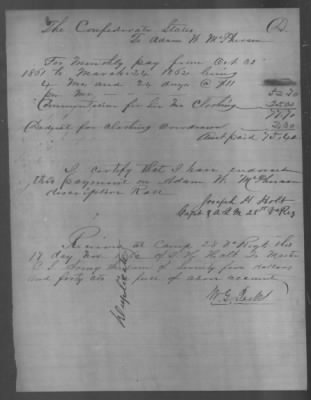 The Confederate States
To Adam W. McPherson
For Monthly pay from Oct 30
1861 to March 24 1862 being
4 Mos and 24 days @ $11
per Mo. 52.70
Commutation for Six Mo Clothing 25.00
77.70
Deduct for clothing
Amt paid 75.
I certify that I have endorsed
this payment on Adam W. McPherson
discriptive Roll
Joseph H. Holt
Capt & A.Q.M. 28th Va Reg
Received at Camp 28 Va Regt this
17 day of J. H. Holt
C.S. Army the sum of Seventy five dollars
and forty cts in full of above account
Duplicate